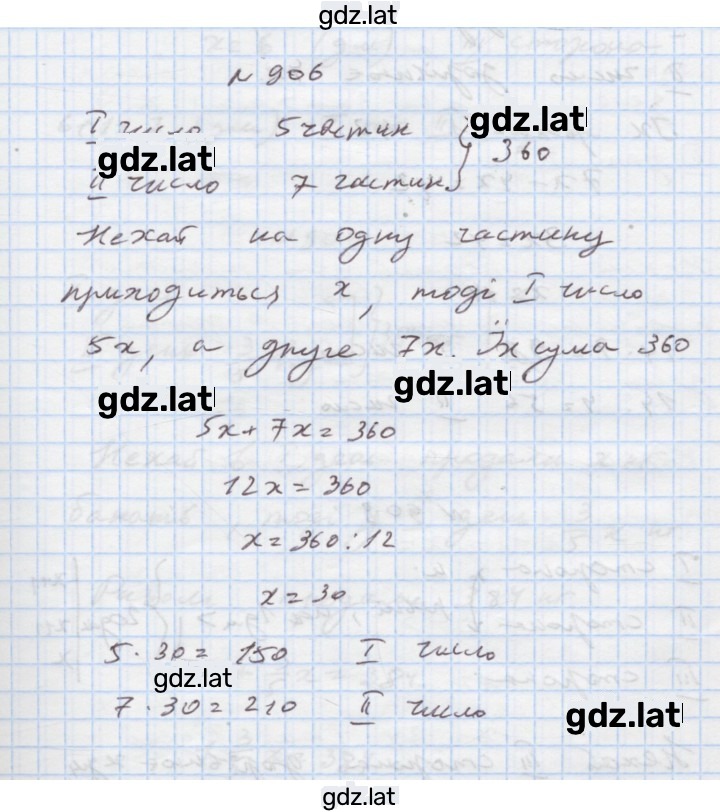 gdz.lat
№ 906
I число 5 частин
gdz.lat
} 360
gdz.lat
II число 7 частин
Нехай на одну частину
приходиться x, тоді I число
5x, а друге 7x. Їх сума 360
gdz.lat
gdz.lat
5x + 7x = 360
12x = 360
x = 360 : 12
x = 30
5 · 30 = 150 I число
gdz.lat
7 · 30 = 210 II число
gdz.lat
gdz.lat